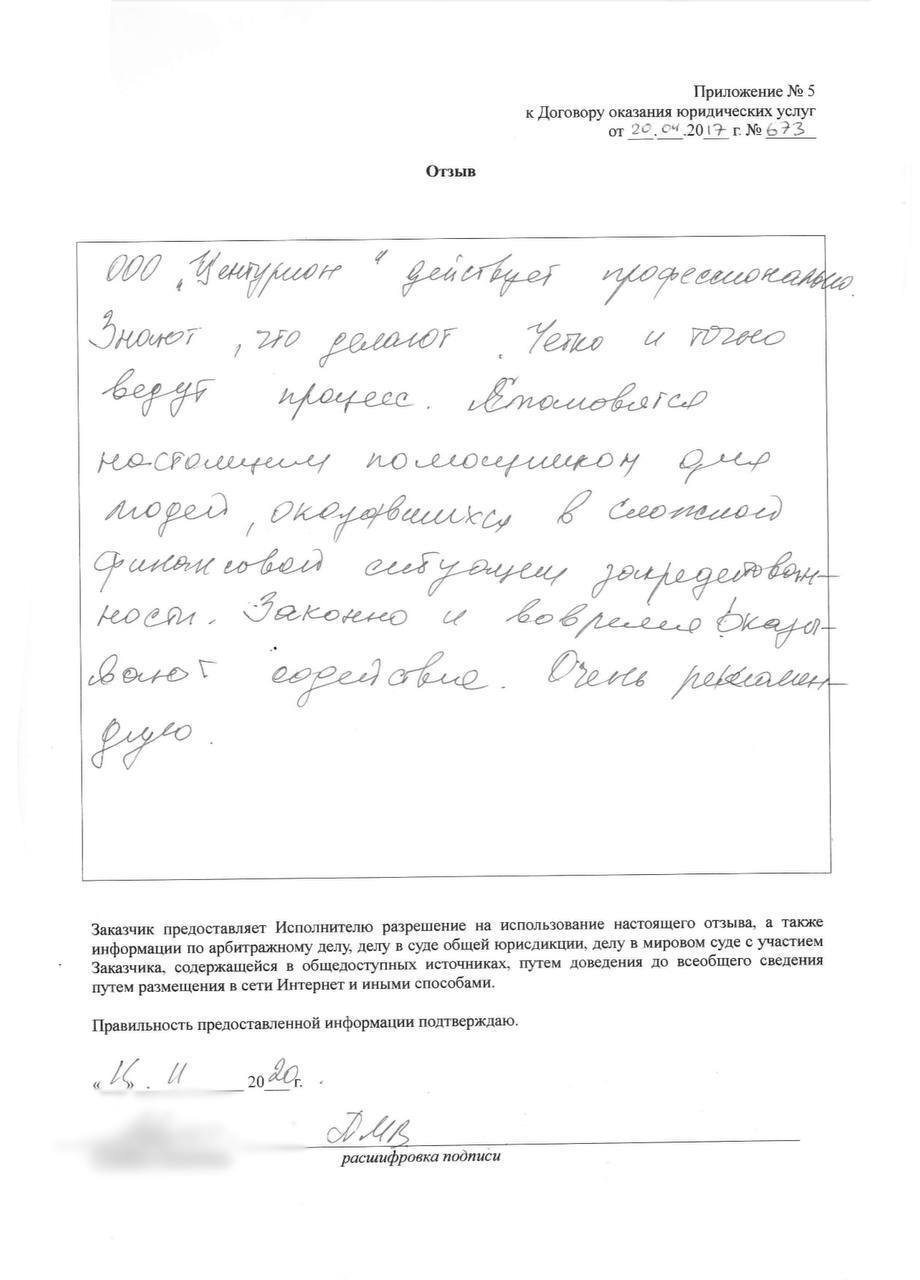 Приложение № 5
к Договору оказания юридических услуг
от 20.04.2017 г. № 673
Отзыв
ООО „Центурион“ действует профессионально.
Знают, что делают. Четко и точно
ведут процесс. Становятся
настоящим помощником для
людей, оказавшихся в сложной
финансовой ситуации закредитован-
ности. Законно и вовремя оказы-
вают содействие. Очень рекомен-
дую.
Заказчик предоставляет Исполнителю разрешение на использование настоящего отзыва, а также
информации по арбитражному делу, делу в суде общей юрисдикции, делу в мировом суде с участием
Заказчика, содержащейся в общедоступных источниках, путем доведения до всеобщего сведения
путем размещения в сети Интернет и иными способами.
Правильность предоставленной информации подтверждаю.
« » . 11 2020 г.
ДМВ
расшифровка подписи